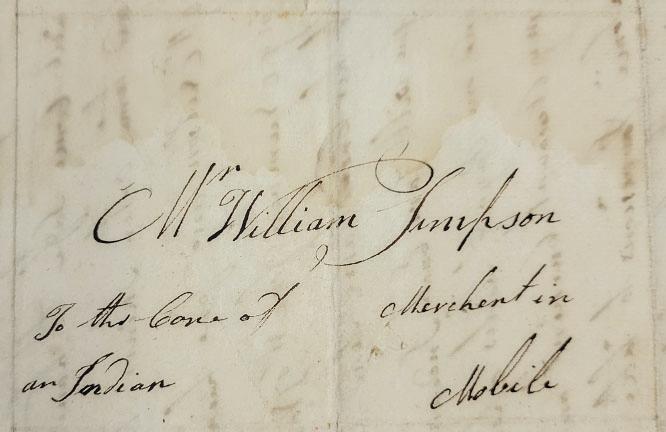 Mr William Simpson
To the Care of
an Indian
Merchent in
Mobile